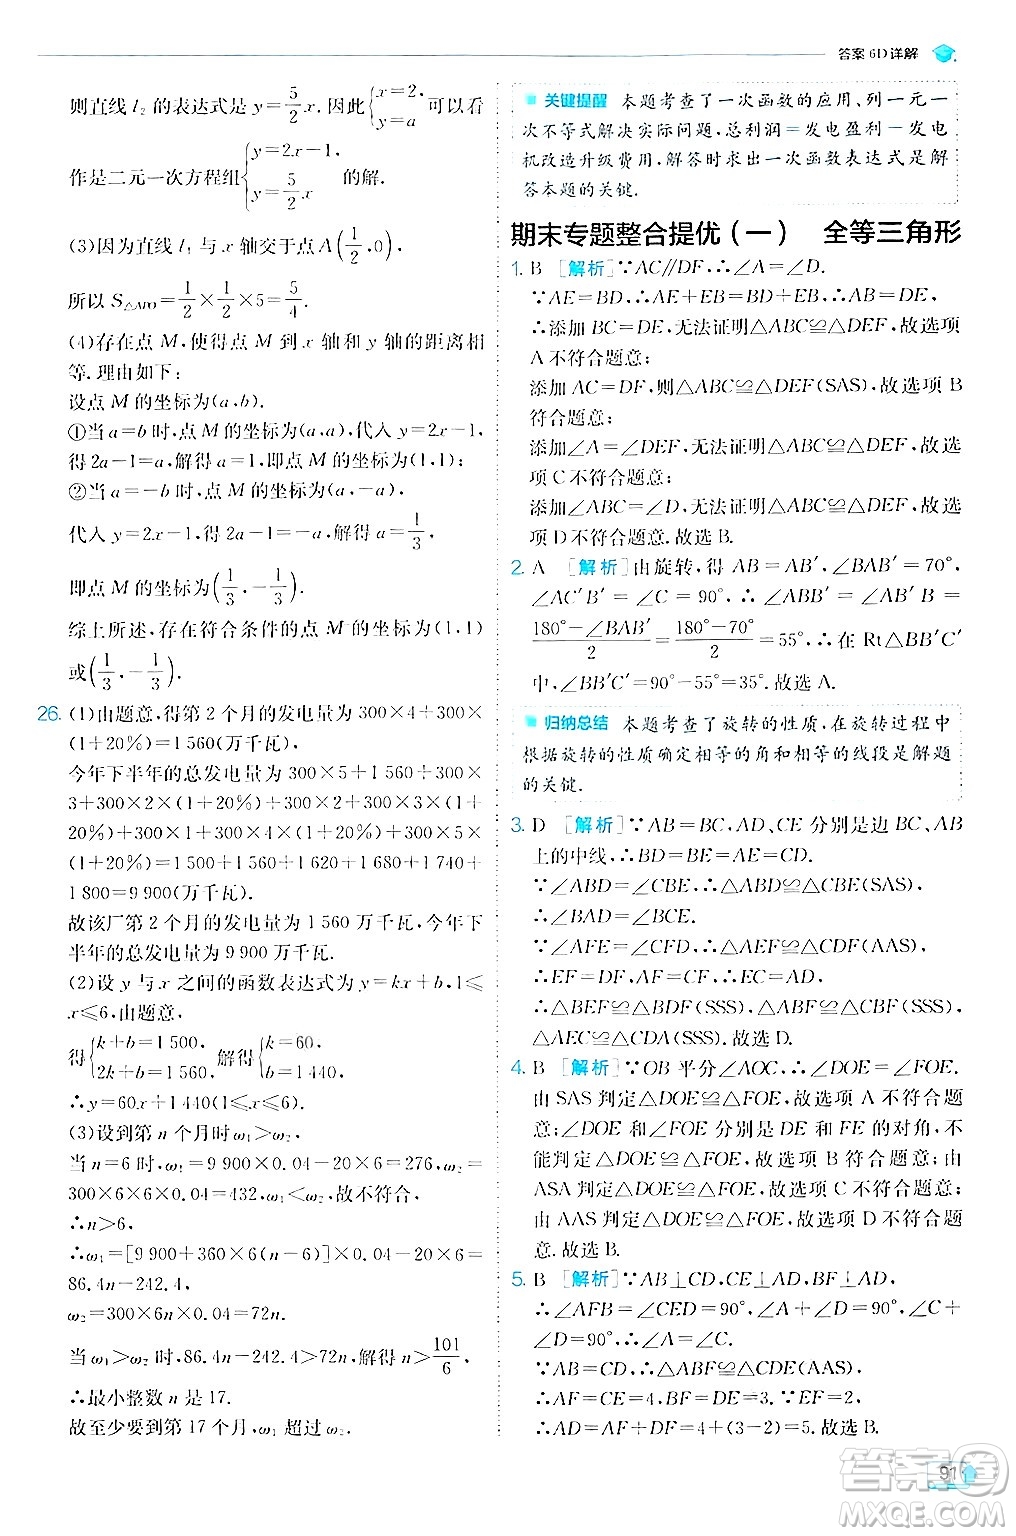 答案6D详解
则直线 l₂ 的表达式是 y=5/2 x, 因此{x=2, y=a 可以看
作是二元一次方程组{y=2x-1, y=5/2 x 的解.
(3)因为直线 l₁ 与 x 轴交于点 A(1/2,0),
所以 S△APO=1/2×1/2×5=5/4.
(4)存在点 M,使得点 M 到 x 轴和 y 轴的距离相
等.理由如下:
设点 M 的坐标为(a,b).
①当 a=b 时,点 M 的坐标为(a,a),代入 y=2x-1,
得 2a-1=a,解得 a=1,即点 M 的坐标为(1,1);
②当 a=-b 时,点 M 的坐标为(a,-a),
代入 y=2x-1,得 2a-1=-a,解得 a=1/3,
即点 M 的坐标为(1/3,-1/3).
综上所述,存在符合条件的点 M 的坐标为(1,1)
或(1/3,-1/3).
26. (1)由题意,得第 2 个月的发电量为 300×4+300×
(1+20%)=1 560(万千瓦),
今年下半年的总发电量为 300×5+1 560+300×
3+300×2×(1+20%)+300×2+300×3×(1+
20%)+300×1+300×4×(1+20%)+300×5×
(1+20%)=1 500+1 560+1 620+1 680+1 740+
1 800=9 900(万千瓦).
故该厂第 2 个月的发电量为 1 560 万千瓦,今年下
半年的总发电量为 9 900 万千瓦.
(2)设 y 与 x 之间的函数表达式为 y=kx+b,1≤
x≤6,由题意,
得{k+b=1 500, 2k+b=1 560, 解得{k=60, b=1 440,
∴y=60x+1 440(1≤x≤6).
(3)设到第 n 个月时 ω₁>ω₂,
当 n=6 时,ω₁=9 900×0.04-20×6=276,ω₂=
300×6×6×0.04=432,ω₁<ω₂,故不符合,
∴n>6,
∴ω₁=[9 900+360×6(n-6)]×0.04-20×6=
86.4n-242.4,
ω₂=300×6n×0.04=72n.
当 ω₁>ω₂ 时,86.4n-242.4>72n,解得 n>101/6,
∴最小整数 n 是 17.
故至少要到第 17 个月,ω₁ 超过 ω₂.
关键提醒 本题考查了一次函数的应用、列一元一
次不等式解决实际问题,总利润=发电盈利-发电
机改造升级费用,解答时求出一次函数表达式是解
答本题的关键.
期末专题整合提优(一) 全等三角形
1. B [解析]∵AC∥DF,∴∠A=∠D.
∵AE=BD,∴AE+EB=BD+EB,∴AB=DE,
∴添加 BC=DE,无法证明△ABC≌△DEF,故选项
A 不符合题意;
添加 AC=DF,则△ABC≌△DEF(SAS),故选项 B
符合题意;
添加∠A=∠D,无法证明△ABC≌△DEF,故选
项 C 不符合题意;
添加∠A=∠D,无法证明△ABC≌△DEF,故选
项 D 不符合题意.故选 B.
2. A [解析]由旋转,得 AB=AB′,∠BAB′=70°,
∠AC′B′=∠C=90°,∴∠ABB′=∠AB′B=
(180°-∠BAB′)/2=(180°-70°)/2=55°,∴在 Rt△BB′C′
中,∠B′BC′=90°-55°=35°.故选 A.
归纳总结 本题考查了旋转的性质,在旋转过程中
根据旋转的性质确定相等的角和相等的线段是解题
的关键.
3. D [解析]∵AB=BC,AD、CE 分别是边 BC、AB
上的中线,∴BD=BE=AE=CD.
∵∠ABD=∠CBE,∴△ABD≌△CBE(SAS),
∴∠BAD=∠BCE.
∵∠AFE=∠CFD,∴△AEF≌△CDF(AAS),
∴EF=DF,AF=CF.∵AC=CA,
∴△BEF≌△BDF(SSS),△ABF≌△CBF(SSS),
△AEC≌△CDA(SSS).故选 D.
4. B [解析]∵OB 平分∠AOC,∴∠DOE=∠FOE.
由 SAS 判定△DOE≌△FOE,故选项 A 不符合题
意;∠DOE 和∠FOE 分别是 DE 和 FE 的对角,不
能判定△DOE≌△FOE,故选项 B 符合题意;由
ASA 判定△DOE≌△FOE,故选项 C 不符合题意;
由 AAS 判定△DOE≌△FOE,故选项 D 不符合题
意.故选 B.
5. B [解析]∵AB⊥CD,CE⊥AD,BF⊥AD,
∴∠AFB=∠CED=90°,∠A+∠D=90°,∠C+
∠D=90°,∴∠A=∠C.
∵AB=CD,∴△ABF≌△CDE(AAS),
∴AF=CE=4,BF=DE=3.∵EF=2,
∴AD=AF+DF=4+(3-2)=5.故选 B.
91
答案圈
MXQE.COM